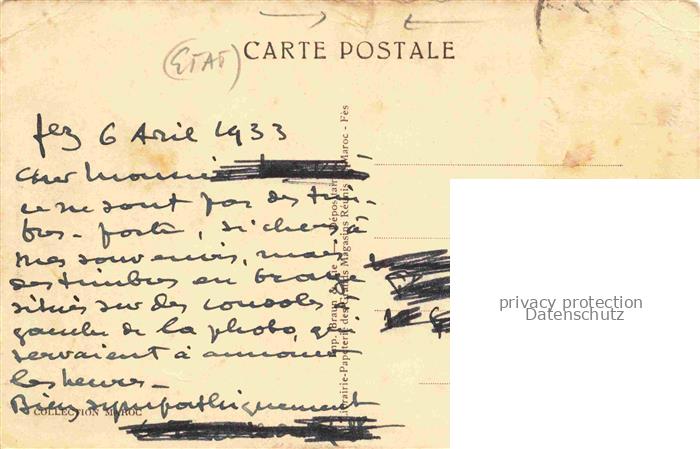 (ETAT)
CARTE POSTALE
fez 6 Avril 1933
Cher Monsieur
ce ne sont pas des tim-
bres-poste, si chers à
mes souvenirs, mais
des timbres en bronze
situés sur des consoles à
gauche de la photo, qui
servaient à annoncer
les heures -
Bien sympathiquement
COLLECTION MAROC
Imp. Braun & Cie — Dépositaire Maroc - Fès
Librairie-Papeterie des Grands Magasins Réunis
privacy protection
Datenschutz